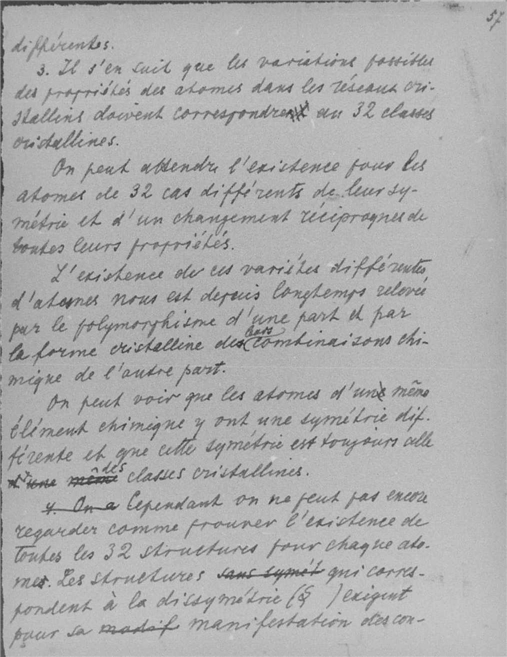 57
différentes.
3. Il s'en suit que les variations possibles
des propriétés des atomes dans les réseaux cri-
stallins doivent correspondre au 32 classes
cristallines.
On peut attendre l'existence pour les
atomes de 32 cas différents de leur sy-
métrie et d'un changement réciproques de
toutes leurs propriétés.
L'existence de ces variétés différentes
d'atomes nous est depuis longtemps relevée
par le polymorphisme d'une part et par
la forme cristalline des leurs combinaisons chi-
mique de l'autre part.
On peut voir que les atomes d'un même
élément chimique y ont une symétrie dif-
férente et que cette symétrie est toujours celle
d'une même des classes cristallines.
4. On a Cependant on ne peut pas encore
regarder comme prouver l'existence de
toutes les 32 structures pour chaque ato-
me. Les structures sans symét qui corres-
pondent à la dissymétrie ( ) exigent
pour sa manifestation des con-